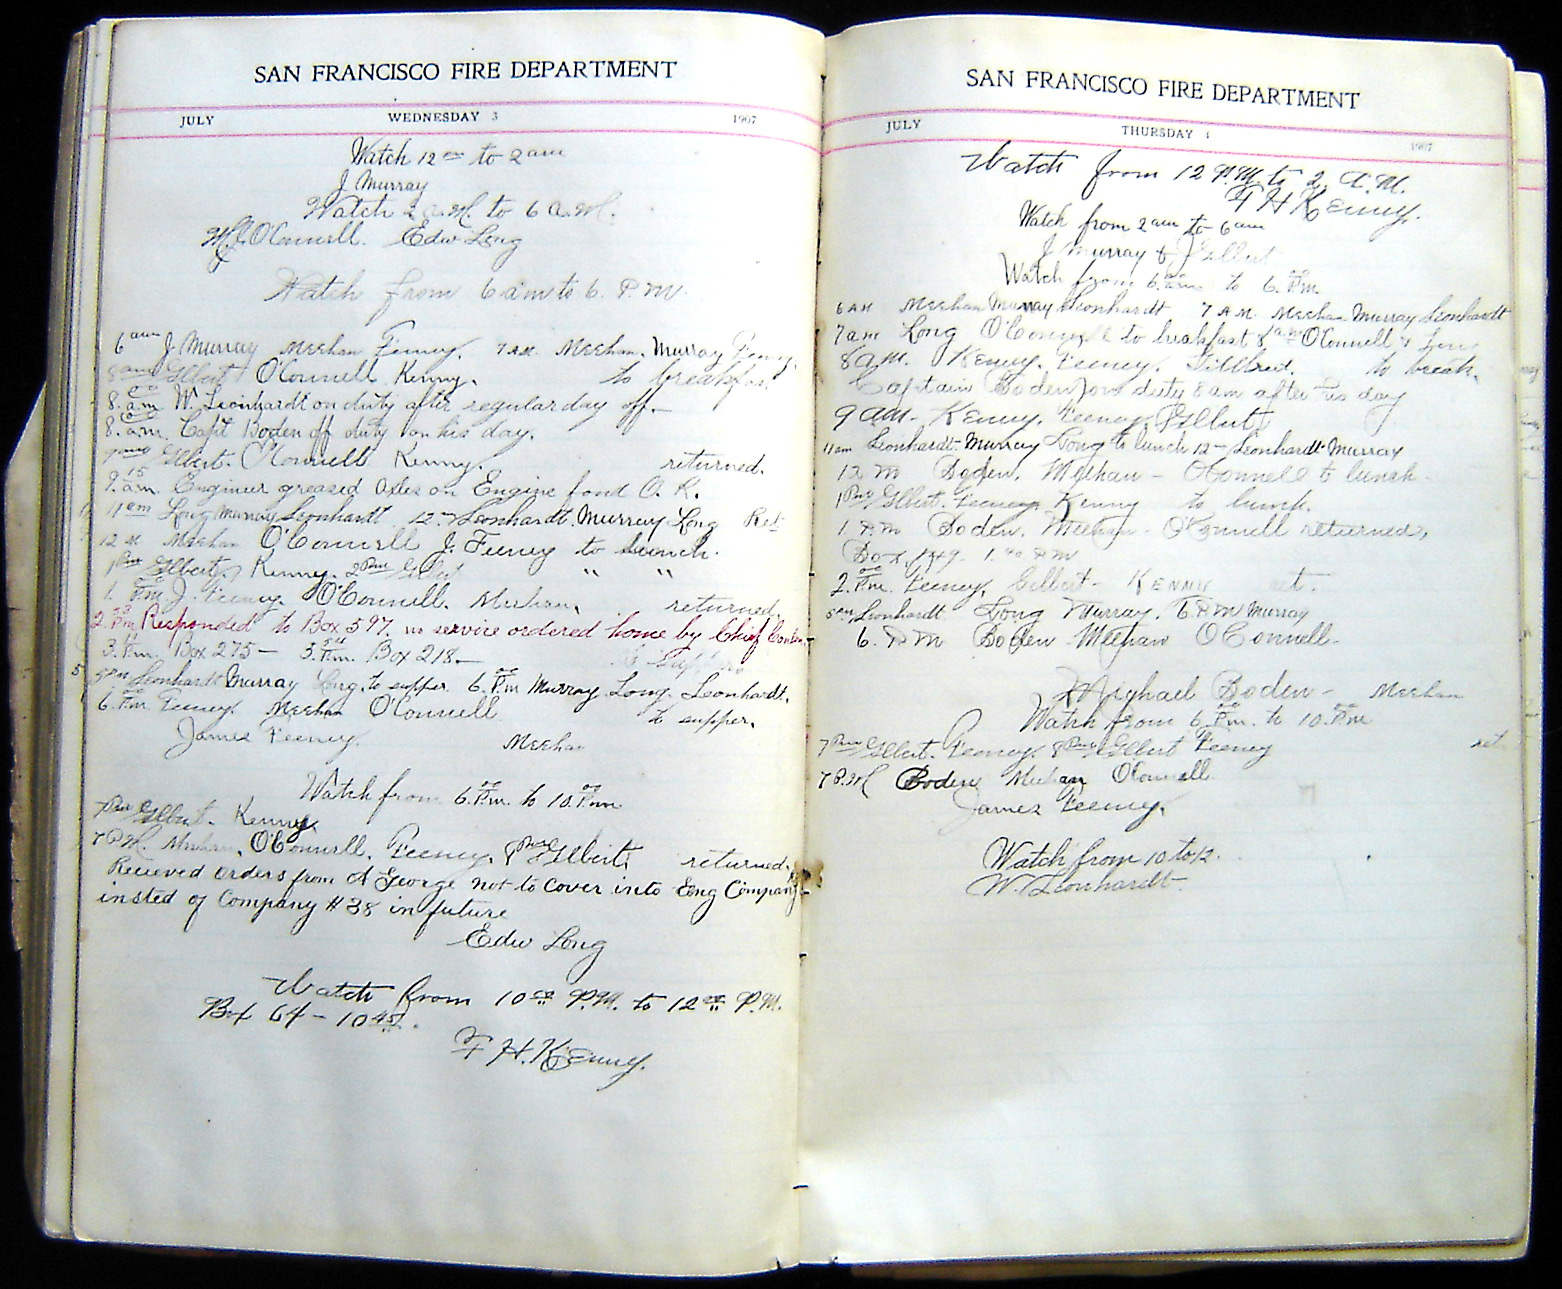 SAN FRANCISCO FIRE DEPARTMENT
JULY WEDNESDAY 3 1907
Watch 12 am to 2 am
J Murray
Watch 2 a.m. to 6 a.m.
M J O'Connell. Edw Long
Watch from 6 am to 6. P.M.
6 am J Murray Meehan Feeney. 7 AM. Meehan. Murray Feeney.
8 am Gilbert O'Connell Kenny. to breakfas
8.00 am W. Leonhardt on duty after regular day off.
8.00 am. Capt Boden off duty on his day.
9 am Gilbert. O'Connell Kenny. returned.
9.15 am. Engineer greased Axles on Engine found O.K.
11 am Long Murray Leonhardt. 12 Leonhardt. Murray Long Ret
12 M Meehan O'Connell J. Feeney to lunch.
1 Pm Gilbert Kenny. 2 Pm Gilbert " "
1.00 Pm J. Feeney. O'Connell. Meehan. returned.
2.00 Pm Responded to Box 597. no service ordered home by Chief
3. Pm. Box 275 – 5. Pm. Box 218 –
5 PM Leonhardt Murray Long. to supper. 6.00 Pm Murray. Long. Leonhardt.
6.00 Pm Feeney. Meehan O'Connell to supper.
James Feeney. Meehan
Watch from 6.00 Pm. to 10.00 Pm
7 Pm Gilbert. Kenny.
7 P.M. Meehan. O'Connell. Feeney. 8 Pm Gilbert returned.
Recieved orders from A George not to cover into Eng Company
insted of Company #38 in future
Edw Long
Watch from 10 00 P.M. to 12 00 P.M.
Box 64 – 10 45.
F H. Kenny.
SAN FRANCISCO FIRE DEPARTMENT
JULY THURSDAY 4 1907
Watch from 12 P.M. to 2, A.M.
F H Kenny.
Watch from 2 am to 6 am
J Murray & J Gilbert
Watch from 6.00 am to 6.00 Pm
6 AM Meehan Murray Leonhardt 7 AM. Meehan Murray Leonhardt
7 am Long O'Connell to breakfast 8 am O'Connell & Long
8 am. Kenny. Feeney. Gilbert. to break.
Captain Boden on duty 8 am after his day
9 am – Kenny. Feeney. Gilbert
11 am Leonhardt. Murray Long to lunch 12 – Leonhardt Murray
12 M Boden. Meehan – O'Connell to lunch.
1 Pm Gilbert. Feeney Kenny to lunch.
1 P.M Boden. Meehan – O'Connell returned,
Box 1.40 P.M
2.00 Pm. Feeney. Gilbert – Kenny ret.
5 PM Leonhardt Long Murray. 6 P M Murray
6. P.M Boden Meehan O'Connell –
Michael Boden – Meehan
Watch from 6.00 Pm. to 10.00 Pm
7 Pm Gilbert. Feeney. 8 Pm Gilbert Feeney ret.
7 P.M Boden Meehan O'Connell
James Feeney.
Watch from 10 to 12.
W. Leonhardt.